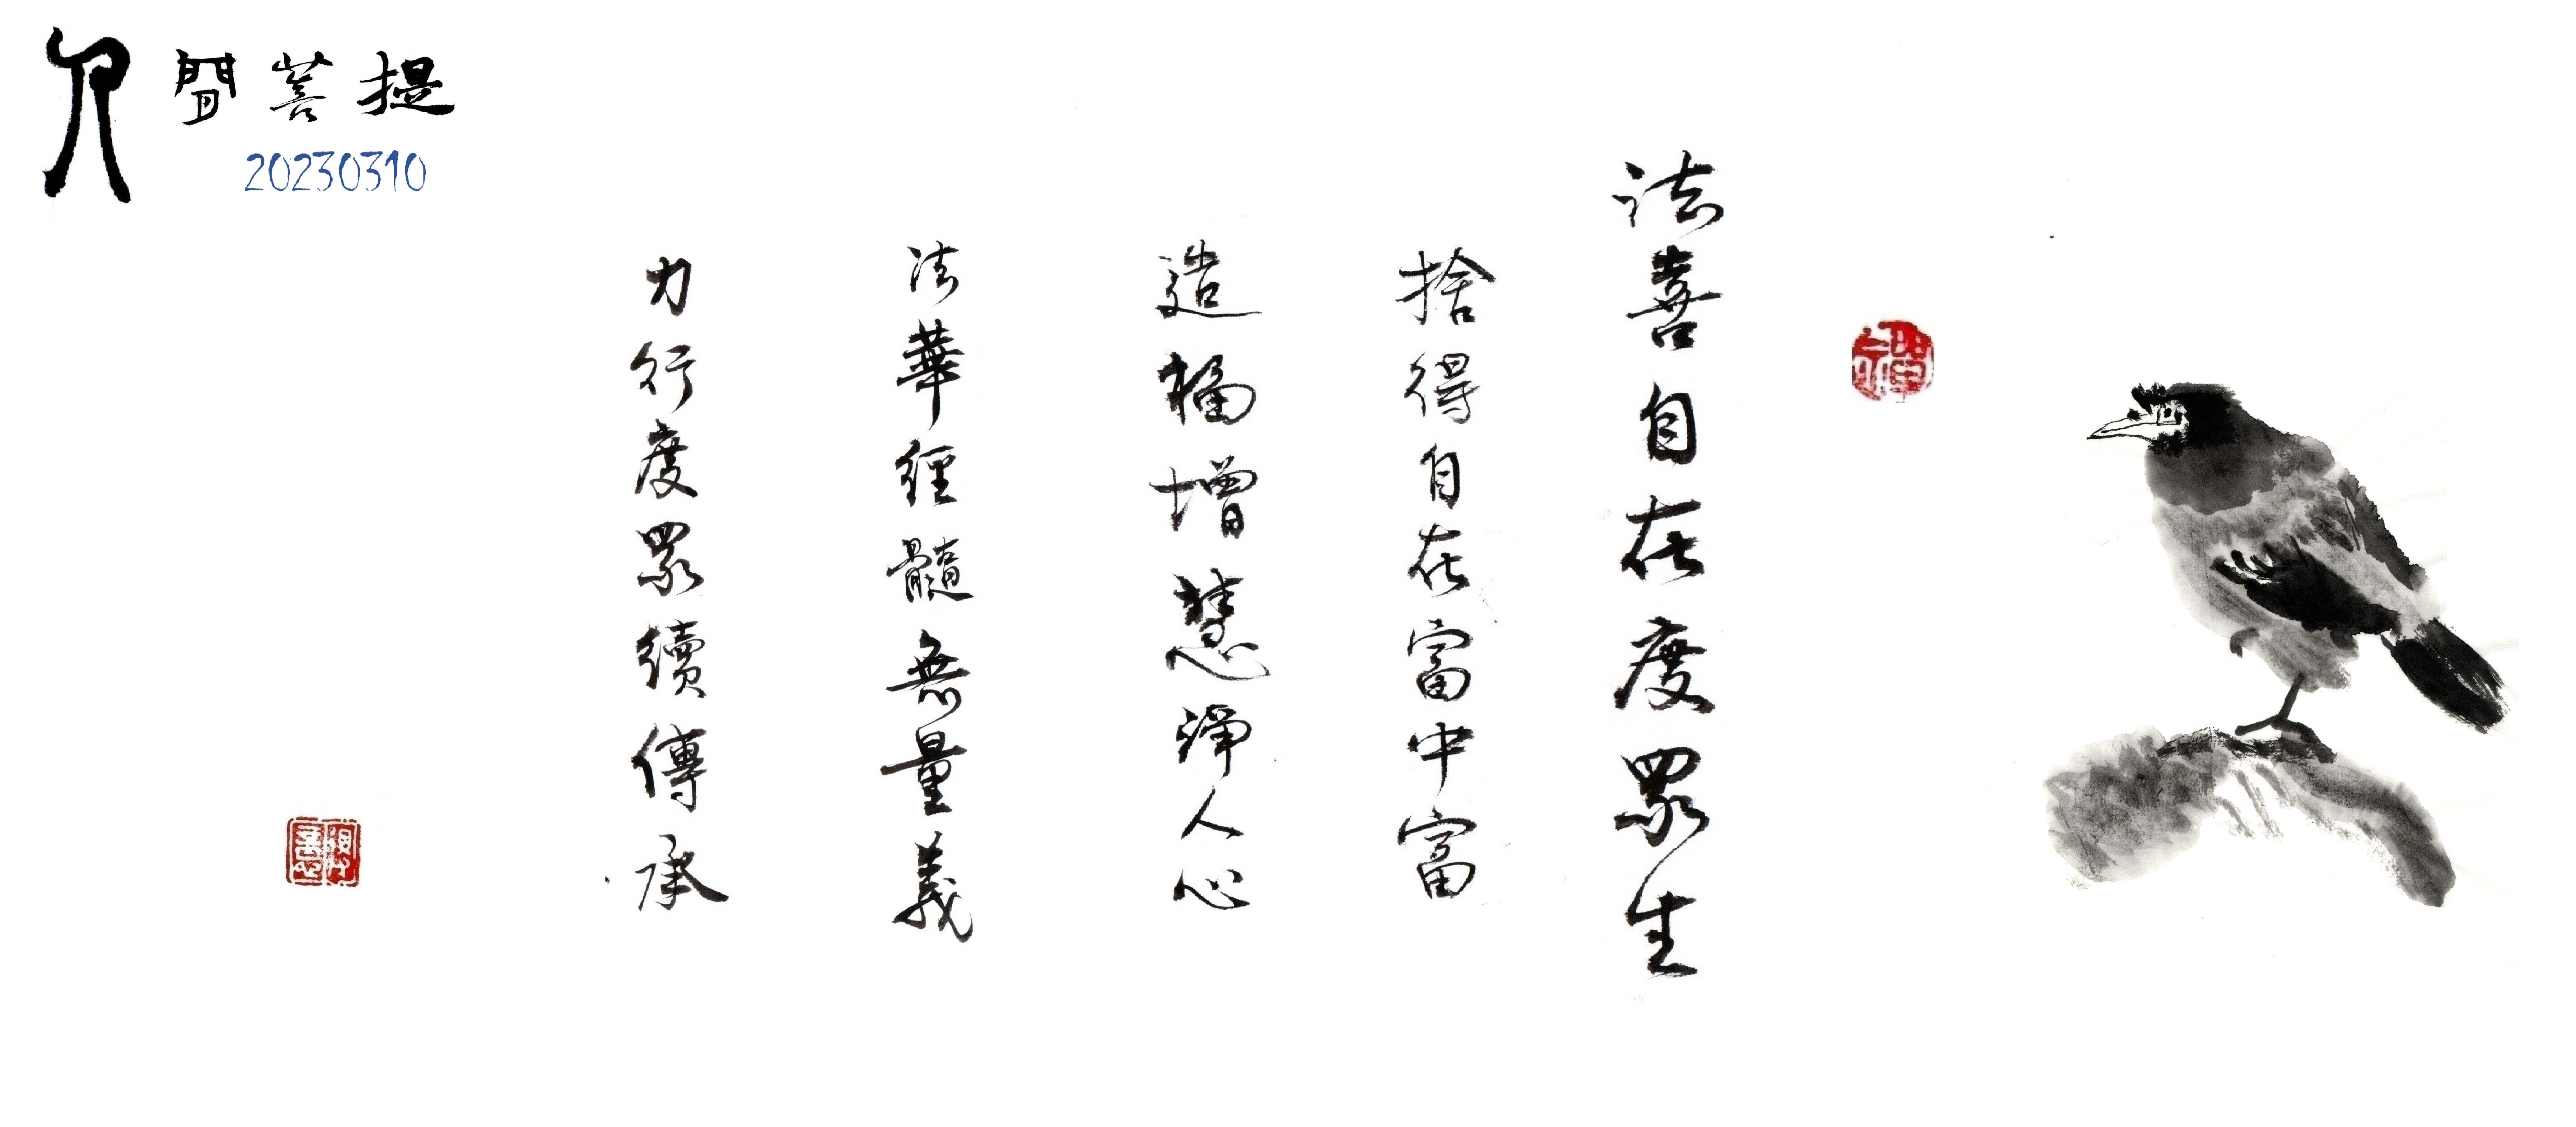 人間菩提
20230310
法喜自在度眾生
捨得自在富中富
造福增慧淨人心
法華經髓無量義
力行度眾續傳承
禪